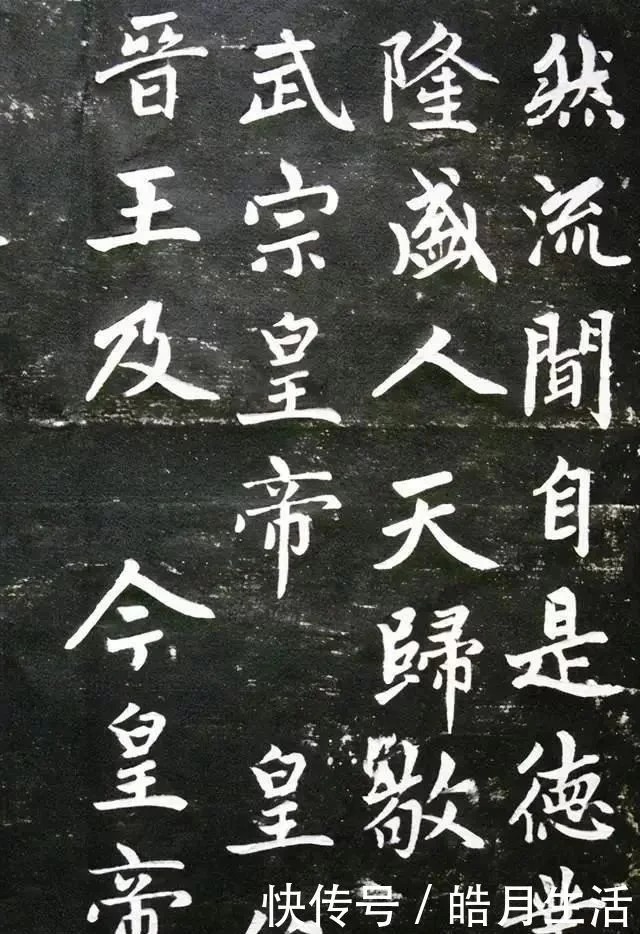 然流聞自是德
隆盛人天歸敬
武宗皇帝 皇
晋王及 今皇帝
快传号 / 皓月生活